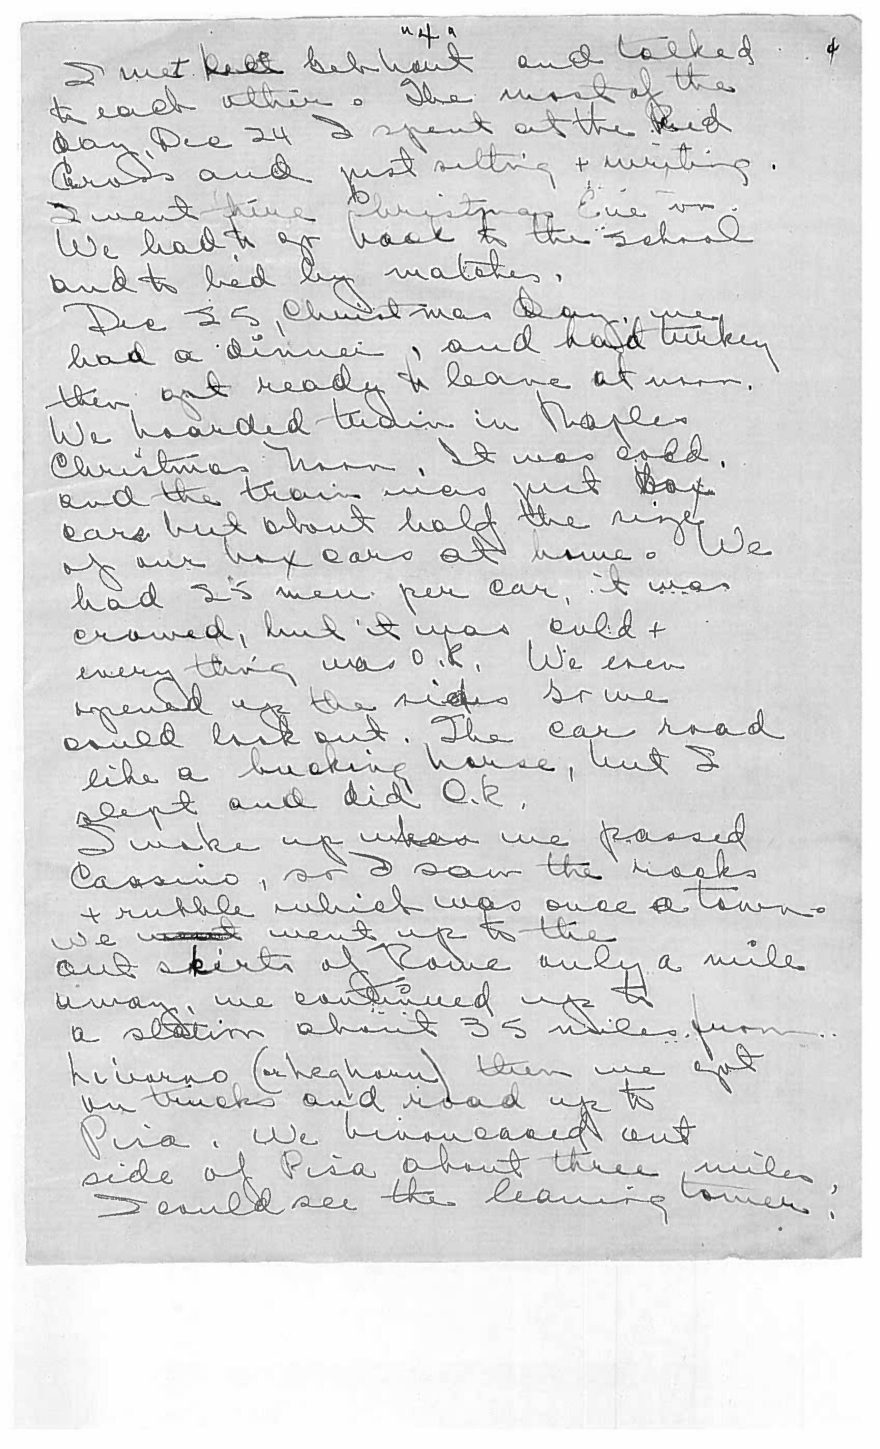 "4"
4
I met and talked
to each other. The most of the
day, Dec 24 I spent at the Red
Cross and just sitting + writing.
I went here Christmas Eve on.
We had to go back to the school
and to bed by matches.
Dec 25, Christmas Day, we
had a dinner, and had turkey
then got ready to leave at noon.
We boarded train in Naples
Christmas Noon. It was cold,
and the train was just box
cars but about half the size
of our box cars at home. We
had 25 men per car, it was
crowed, but it was cold +
everything was O.K. We even
opened up the sides so we
could look out. The car road
like a bucking hourse, but I
slept and did O.K.
I woke up when we passed
Cassino, so I saw the rocks
+ rubble which was once a town.
We went up to the
out skirts of Rome only a mile
away, we continued up to
a station about 35 miles from
Livorno (or Leghourn) then we got
on trucks and road up to
Pisa. We out
side of Pisa about three miles
I could see the leaning tower!